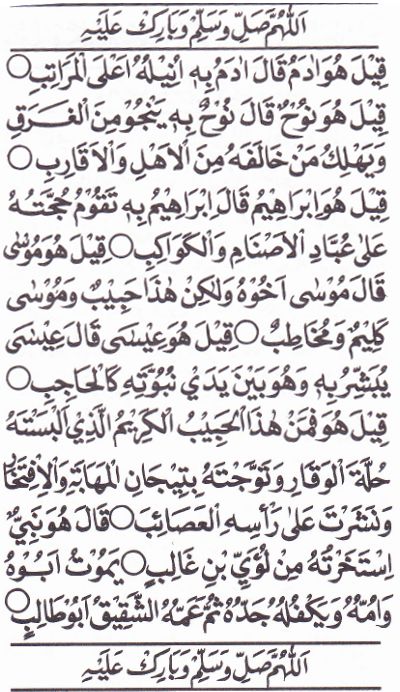 اَللّٰهُمَّ صَلِّ وَسَلِّمْ وَبَارِكْ عَلَيْهِ
قِيْلَ هُوَ اٰدَمُ قَالَ اٰدَمُ بِهٖ اُنِيْلُهُ اَعْلَى الْمَرَاتِبِ ○
قِيْلَ هُوَ نُوْحٌ قَالَ نُوْحٌ بِهٖ يَنْجُوْ مِنَ الْغَرَقِ
وَيَهْلِكُ مَنْ خَالَفَهُ مِنَ الْاَهْلِ وَالْاَقَارِبِ ○
قِيْلَ هُوَ اِبْرَاهِيْمُ قَالَ اِبْرَاهِيْمُ بِهٖ تَقُوْمُ حُجَّتُهُ
عَلٰى عُبَّادِ الْاَصْنَامِ وَالْكَوَاكِبِ ○ قِيْلَ هُوَ مُوْسٰى
قَالَ مُوْسٰى اَخُوْهُ وَلٰكِنْ هٰذَا حَبِيْبٌ وَمُوْسٰى
كَلِيْمٌ وَمُخَاطِبٌ ○ قِيْلَ هُوَ عِيْسٰى قَالَ عِيْسٰى
يُبَشِّرُ بِهٖ وَهُوَ بَيْنَ يَدَيْ نُبُوَّتِهٖ كَالْحَاجِبِ ○
قِيْلَ هُوَ فَمَنْ هٰذَا الْحَبِيْبُ الْكَرِيْمُ الَّذِيْ اَلْبَسْتَهُ
حُلَّةَ الْوَقَارِ وَتَوَّجْتَهُ بِتِيْجَانِ الْمَهَابَةِ وَالْاِفْتِخَارِ
وَنَشَرْتَ عَلٰى رَأْسِهِ الْعَصَائِبَ ○ قَالَ هُوَ نَبِيٌّ
اِسْتَخَرْتُهُ مِنْ لُؤَيِّ بْنِ غَالِبٍ ○ يَمُوْتُ اَبُوْهُ
وَاُمُّهُ وَيَكْفُلُهُ جَدُّهُ ثُمَّ عَمُّهُ الشَّقِيْقُ اَبُوْ طَالِبٍ ○
اَللّٰهُمَّ صَلِّ وَسَلِّمْ وَبَارِكْ عَلَيْهِ